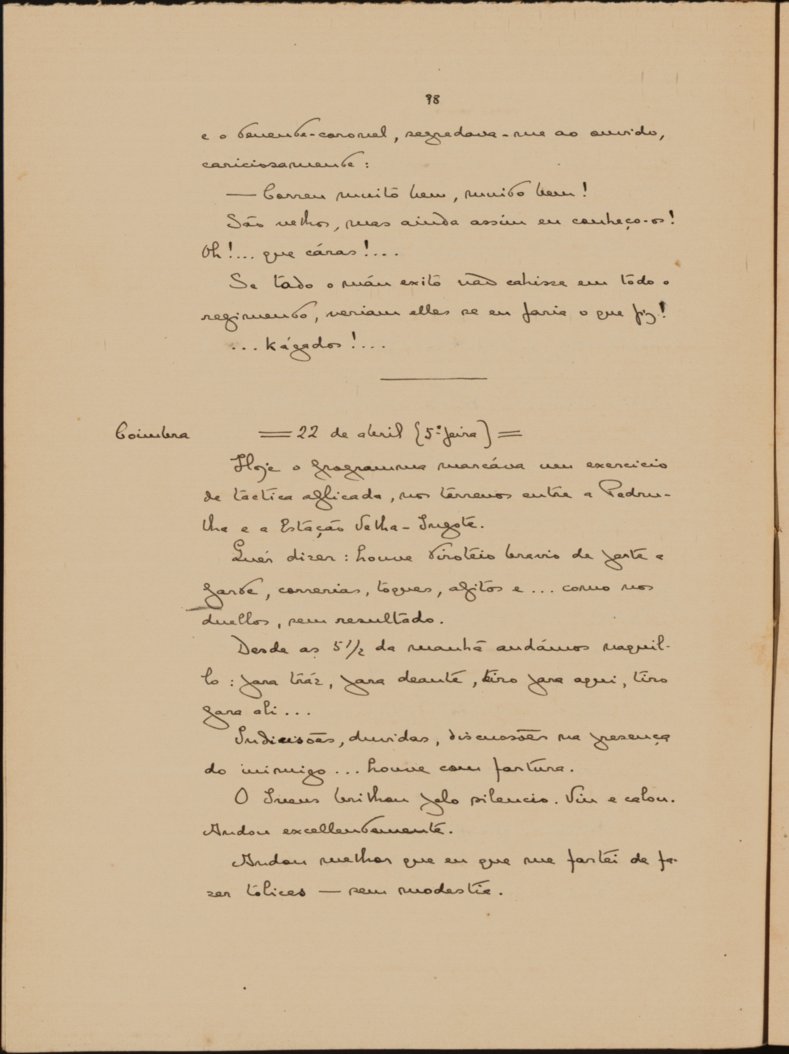 98
e o tenente-coronel, segredava-me ao ouvido,
cariciosamente:
— Correu muito bem, muito bem!
São velhos, mas ainda assim eu conheço-os!
Oh!... que cáras!...
Se tado o máu exito não cahisse em todo o
regimento, veriam elles se eu faria o que fiz!
... Kágados!...
Coimbra = 22 de abril (5.ª feira) =
Hoje o programma marcáva um exercicio
de táctica applicada, nos térrenos entre a Pedru-
lha e a Estação Velha-Ingote.
Quér dizer: houve tirotéio bravio de parte a
parte, correrias, toques, apitos e... como nos
duellos, sem resultado.
Desde as 5 1/2 da manhã andámos naquil-
lo: para tráz, para deante, tiro para aqui, tiro
para ali...
Indicisões, duvidas, discussões na presença
do inimigo... houve com fartura.
O brilhou pelo silencio. Viu e calou.
Andou excellentemente.
Andou melhor que eu que me fartei de fa-
zer tolices — sem modestia.